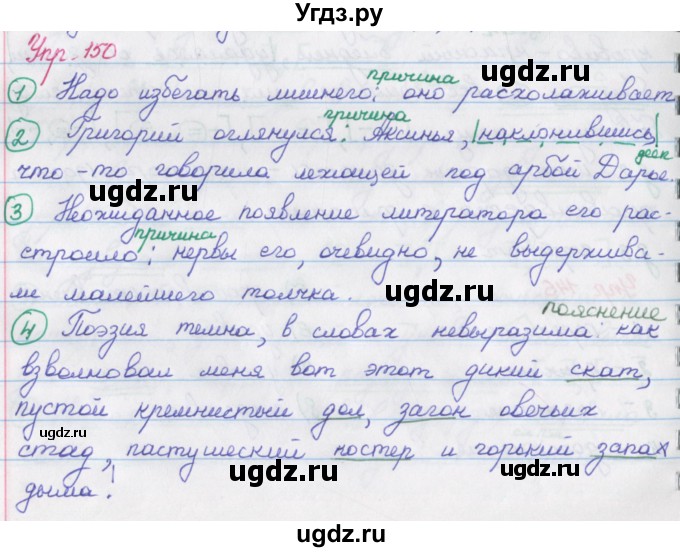 Угдз.ру
Упр. 150
причина
① Надо избегать лишнего: оно расхолаживает
причина
② Григорий оглянулся: Аксинья, |наклонившись,|
деепр
что-то говорила лежащей под арбой Дарье.
③ Неожиданное появление литератора его рас-
причина
строило: нервы его, очевидно, не выдержива-
ли малейшего толчка.
пояснение
④ Поэзия темна, в словах невыразима: как
взволновал меня вот этот дикий скат,
пустой кремнистый дол, загон овечьих
стад, пастушеский костер и горький запах
дыма!
ugdz.ru
ugdz.ru
ugdz.ru
ugdz.ru
ugdz.ru
ugdz.ru
ugdz.ru
ugdz.ru
ugdz.ru
ugdz.ru
ugdz.ru